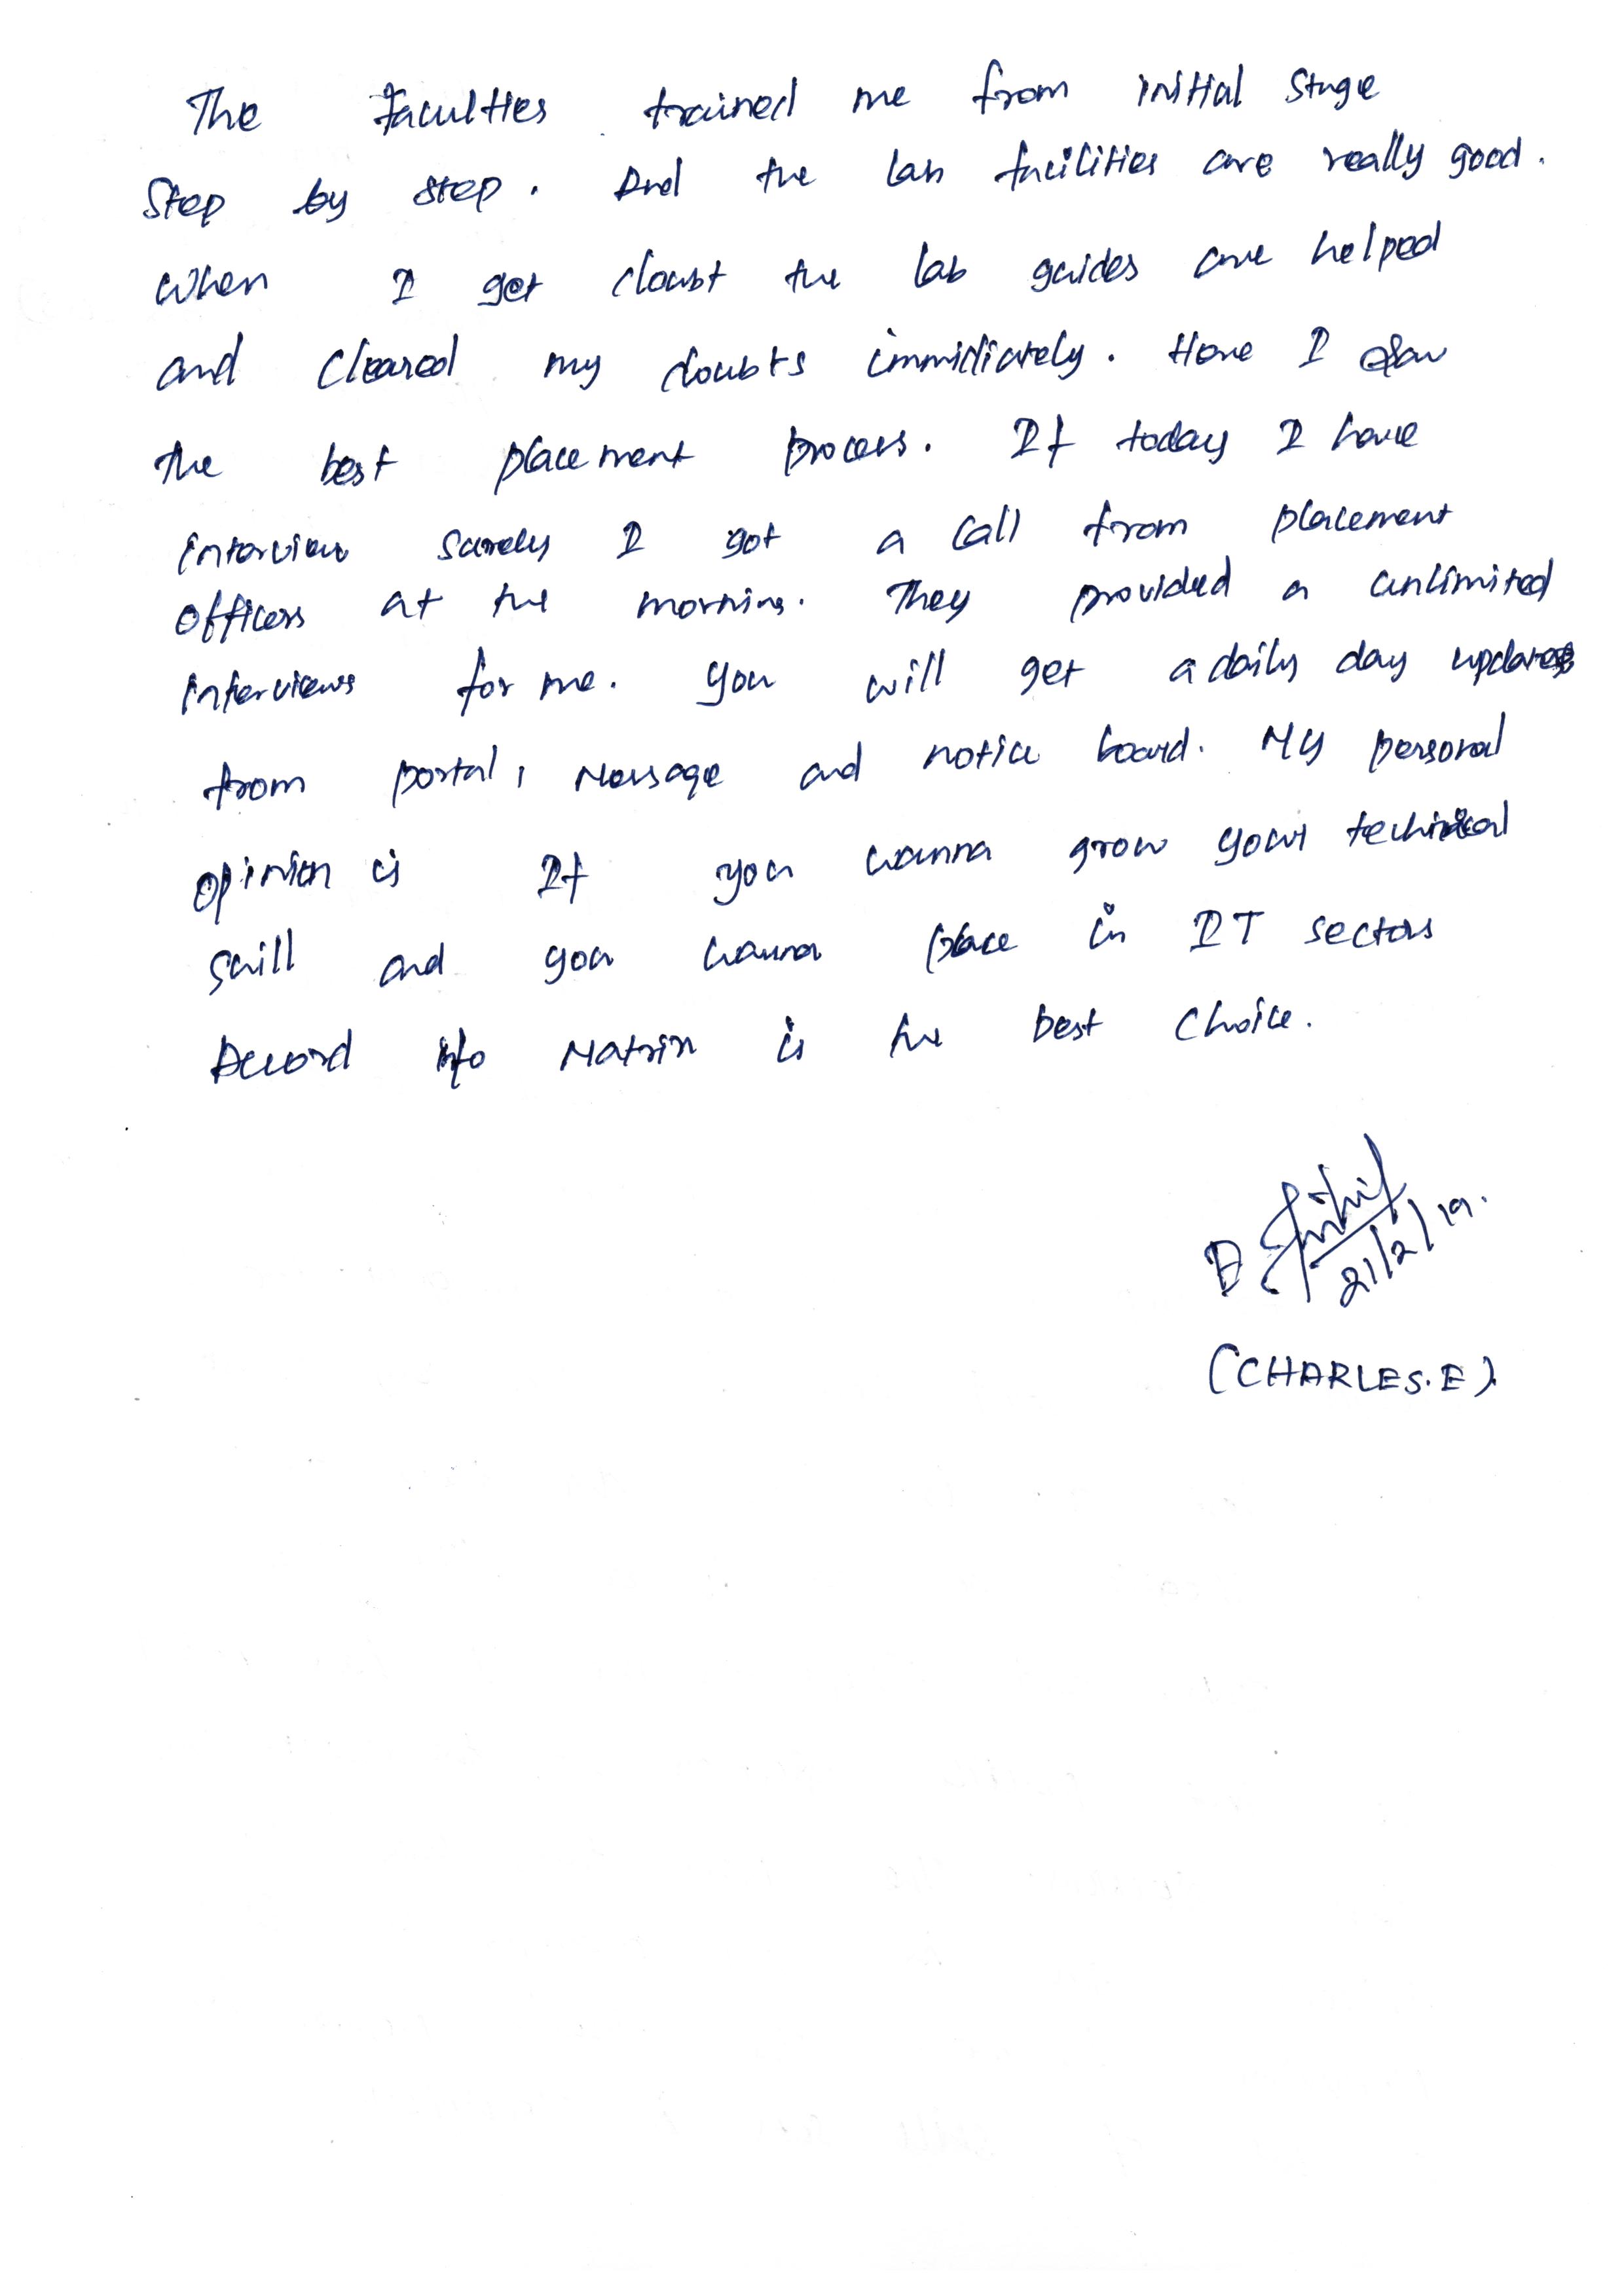 The faculties trained me from initial stage
step by step. And the lab facilities are really good.
When I get doubt the lab guides are helped
and cleared my doubts immidiately. Here I saw
the best placement process. If today I have
interview surely I got a call from placement
officers at the morning. They provided a unlimited
interviews for me. You will get a daily day updates
from portal, Message and notice board. My personal
opinion is If you wanna grow your technical
skill and you wanna place in IT sectors
Accord info Matrix is the best choice.
21/2/19.
(CHARLES.E).